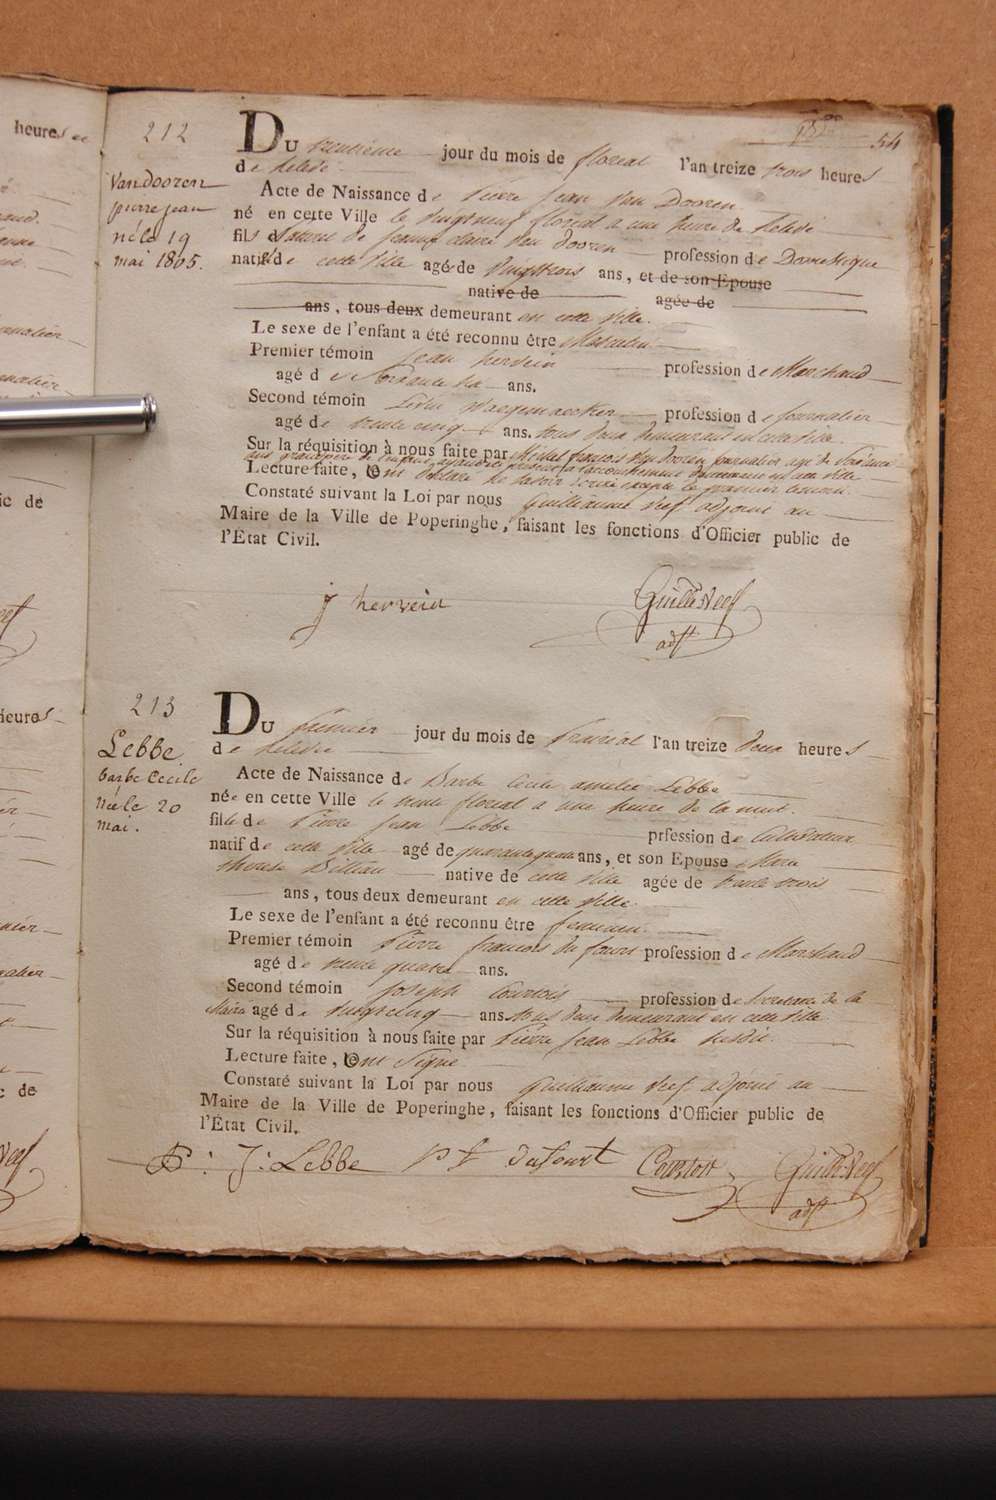 heures
212
54
Van dooren
pierre jean
né le 19
mai 1805.
DU trentieme jour du mois de floreal l'an treize trois heures
de relevée
Acte de Naissance de Pierre Jean Van Dooren
né en cette Ville le vingtneuf floreal a une heure de relevée
fils naturel de claire Van Dooren profession de Domestique
native de cette Ville agée de Vingttrois ans, et de son Epouse
native de agée de
ans, tous deux demeurant en cette Ville.
Le sexe de l'enfant a été reconnu être Masculin
Premier témoin Jean hervein profession de Marchand
agé de ans.
Second témoin profession de Journalier
agé de trente cinq ans. tous deux demeurant en cette Ville
Sur la réquisition à nous faite par Michel francois Van Dooren journalier agé de
demeurant en cette ville
Lecture faite, ont declaré ne savoir ecrire excepté le premier temoin
Constaté suivant la Loi par nous Guilliaume Vref adjoint au
Maire de la Ville de Poperinghe, faisant les fonctions d'Officier public de
l'État Civil.
j hervein
adjt
213
Lebbe
barbe Cecile
Née le 20
mai.
DU Premier jour du mois de Prairial l'an treize deux heures
de relevée
Acte de Naissance de Barbe Cecile amelie Lebbe
née en cette Ville le trente floreal a une heure de la nuit.
fille de Pierre Jean Lebbe prfession de Cultivateur
natif de cette Ville agé de quarantequatre ans, et son Epouse Marie
therese Dillian native de cette Ville agée de trente trois
ans, tous deux demeurant en cette Ville.
Le sexe de l'enfant a été reconnu être feminin.
Premier témoin Pierre francois du fourt profession de Marchand
agé de trente quatre ans.
Second témoin Joseph Courtois profession de Secretaire de la
Mairie agé de vingtcinq ans tous deux demeurant en cette Ville
Sur la réquisition à nous faite par Pierre Jean Lebbe susdit.
Lecture faite, ont Signé
Constaté suivant la Loi par nous Guilliaume Vref adjoint au
Maire de la Ville de Poperinghe, faisant les fonctions d'Officier public de
l'État Civil.
P: J: Lebbe dufourt Courtois
adjt